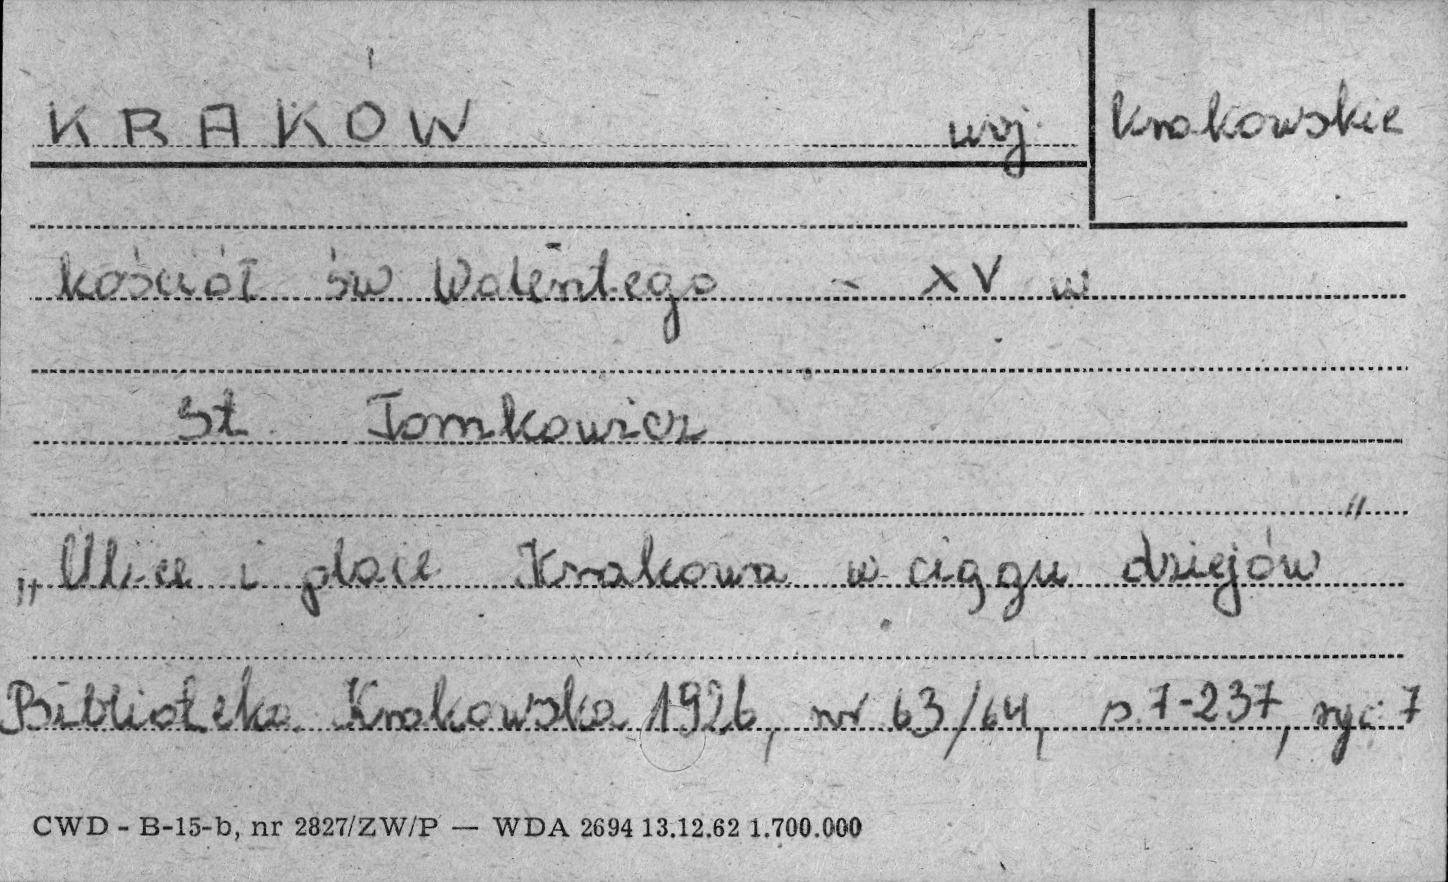 KRAKÓW woj. krakowskie
kościół św Walentego - XV w
St. Tomkowicz
„Ulice i place Krakowa w ciągu dziejów"
Biblioteka Krakowska 1926, nr 63/64, s. 7-237, ryc 7
CWD - B-15-b, nr 2827/ZW/P — WDA 2694 13.12.62 1.700.000